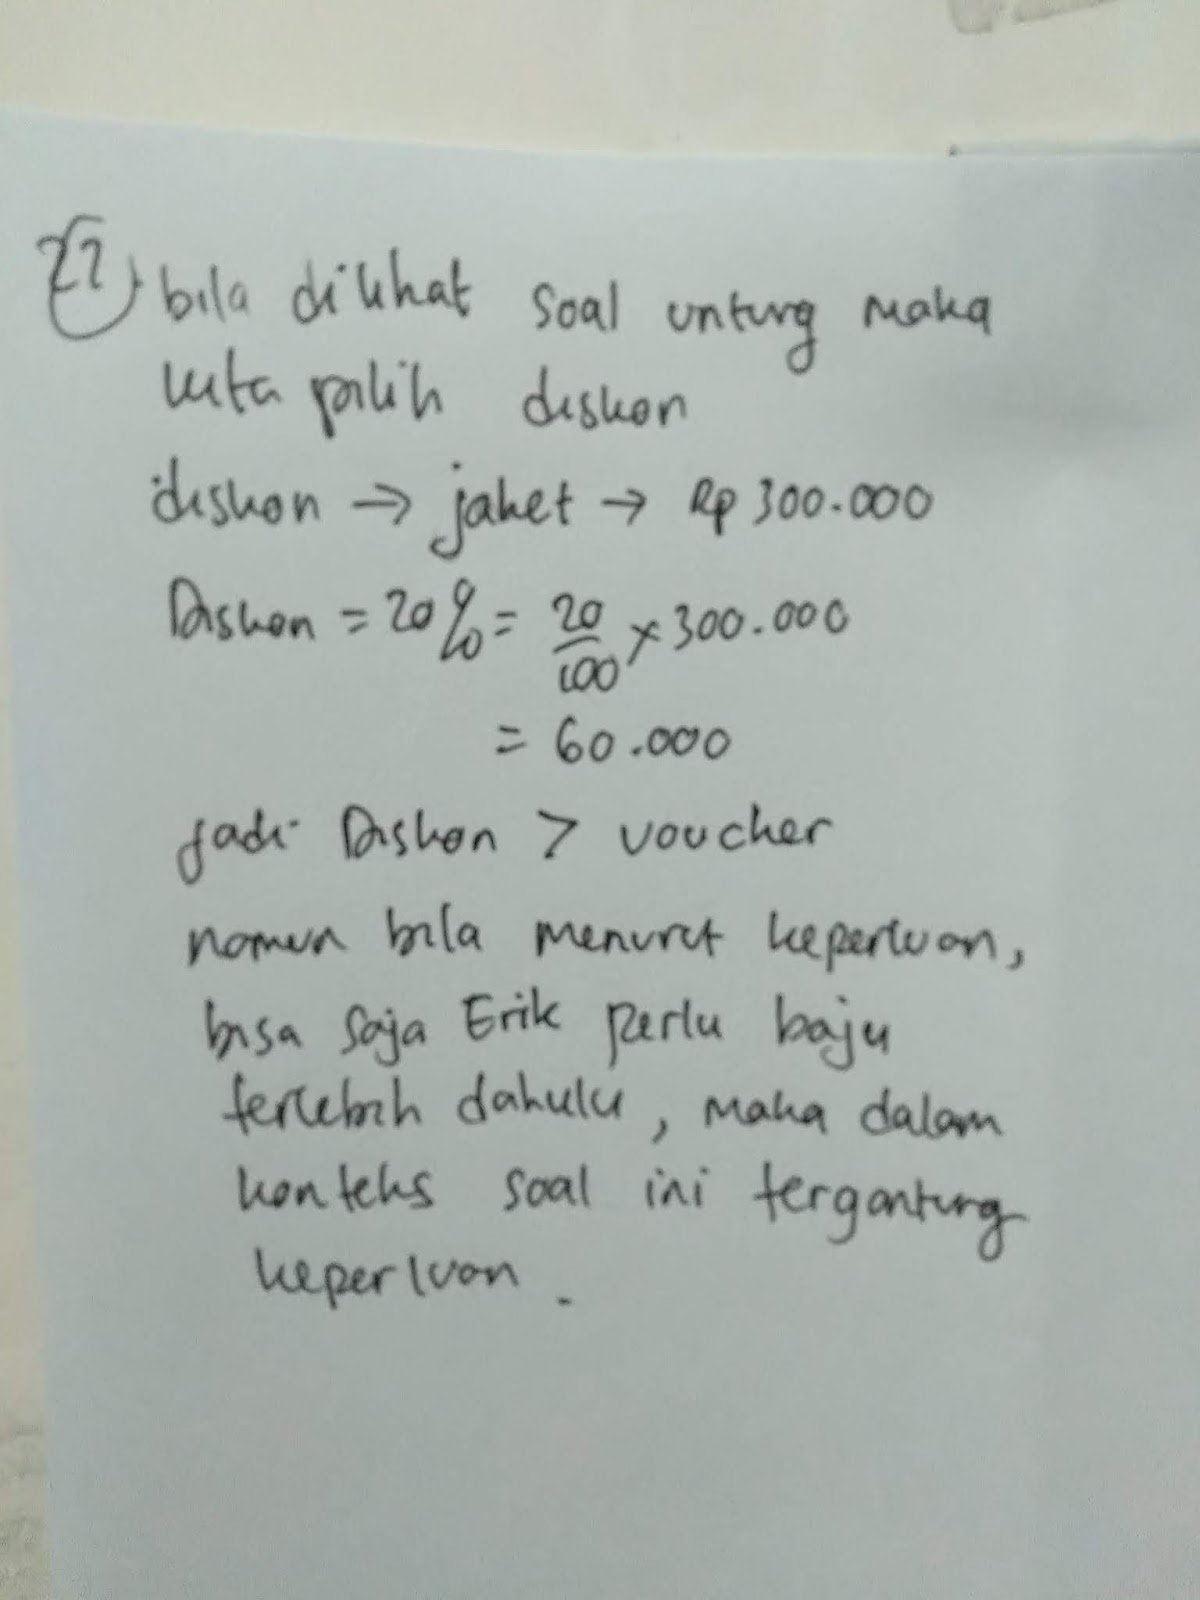 22) bila dilihat soal untung maka
kita pilih diskon
diskon → jaket → Rp 300.000
Diskon = 20% = 20/100 × 300.000
= 60.000
Jadi Diskon > voucher
namun bila menurut keperluan,
bisa saja Erik perlu baju
terlebih dahulu, maka dalam
konteks soal ini tergantung
keperluan.